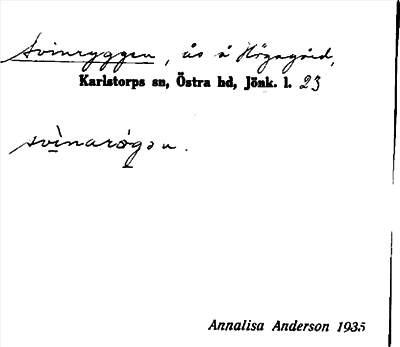 Svinryggen, ås å Högagård,
Karlstorps sn, Östra hd, Jönk. l. 23
svìnarøgən.
Annalisa Anderson 1935